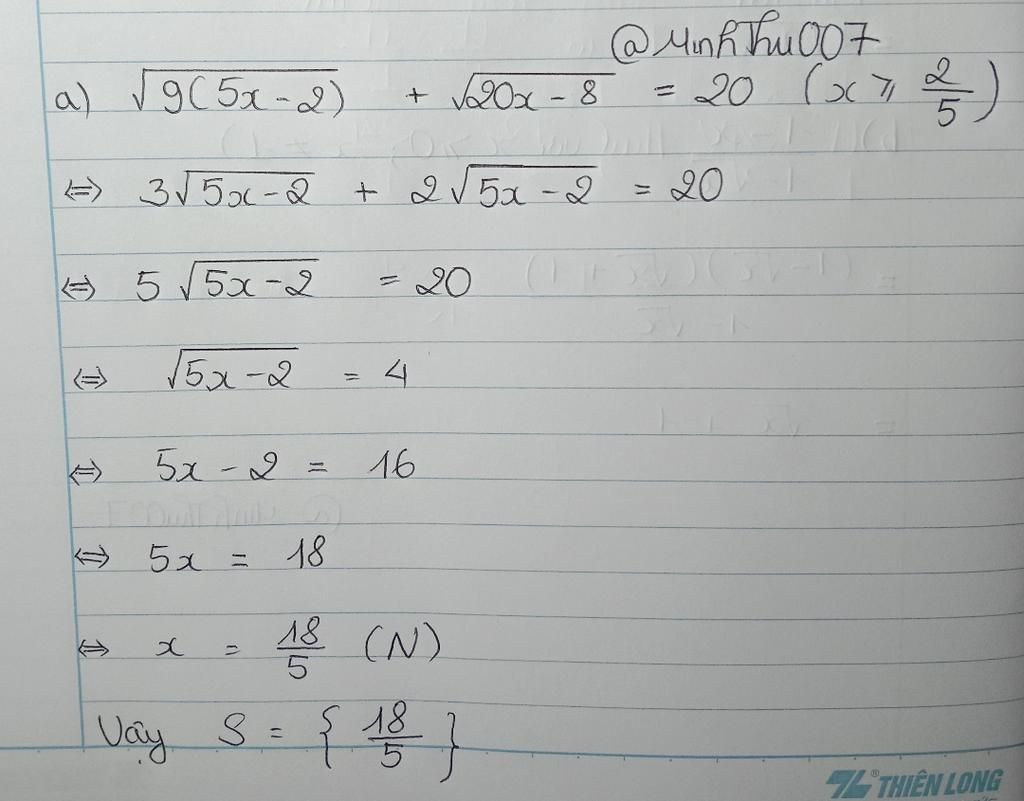 @MinhThu007
a) √9(5x-2) + √20x-8 = 20 (x ⩾ 2/5)
⇔ 3√5x-2 + 2√5x-2 = 20
⇔ 5√5x-2 = 20
⇔ √5x-2 = 4
⇔ 5x - 2 = 16
⇔ 5x = 18
⇔ x = 18/5 (N)
Vậy S = { 18/5 }
®THIÊN LONG